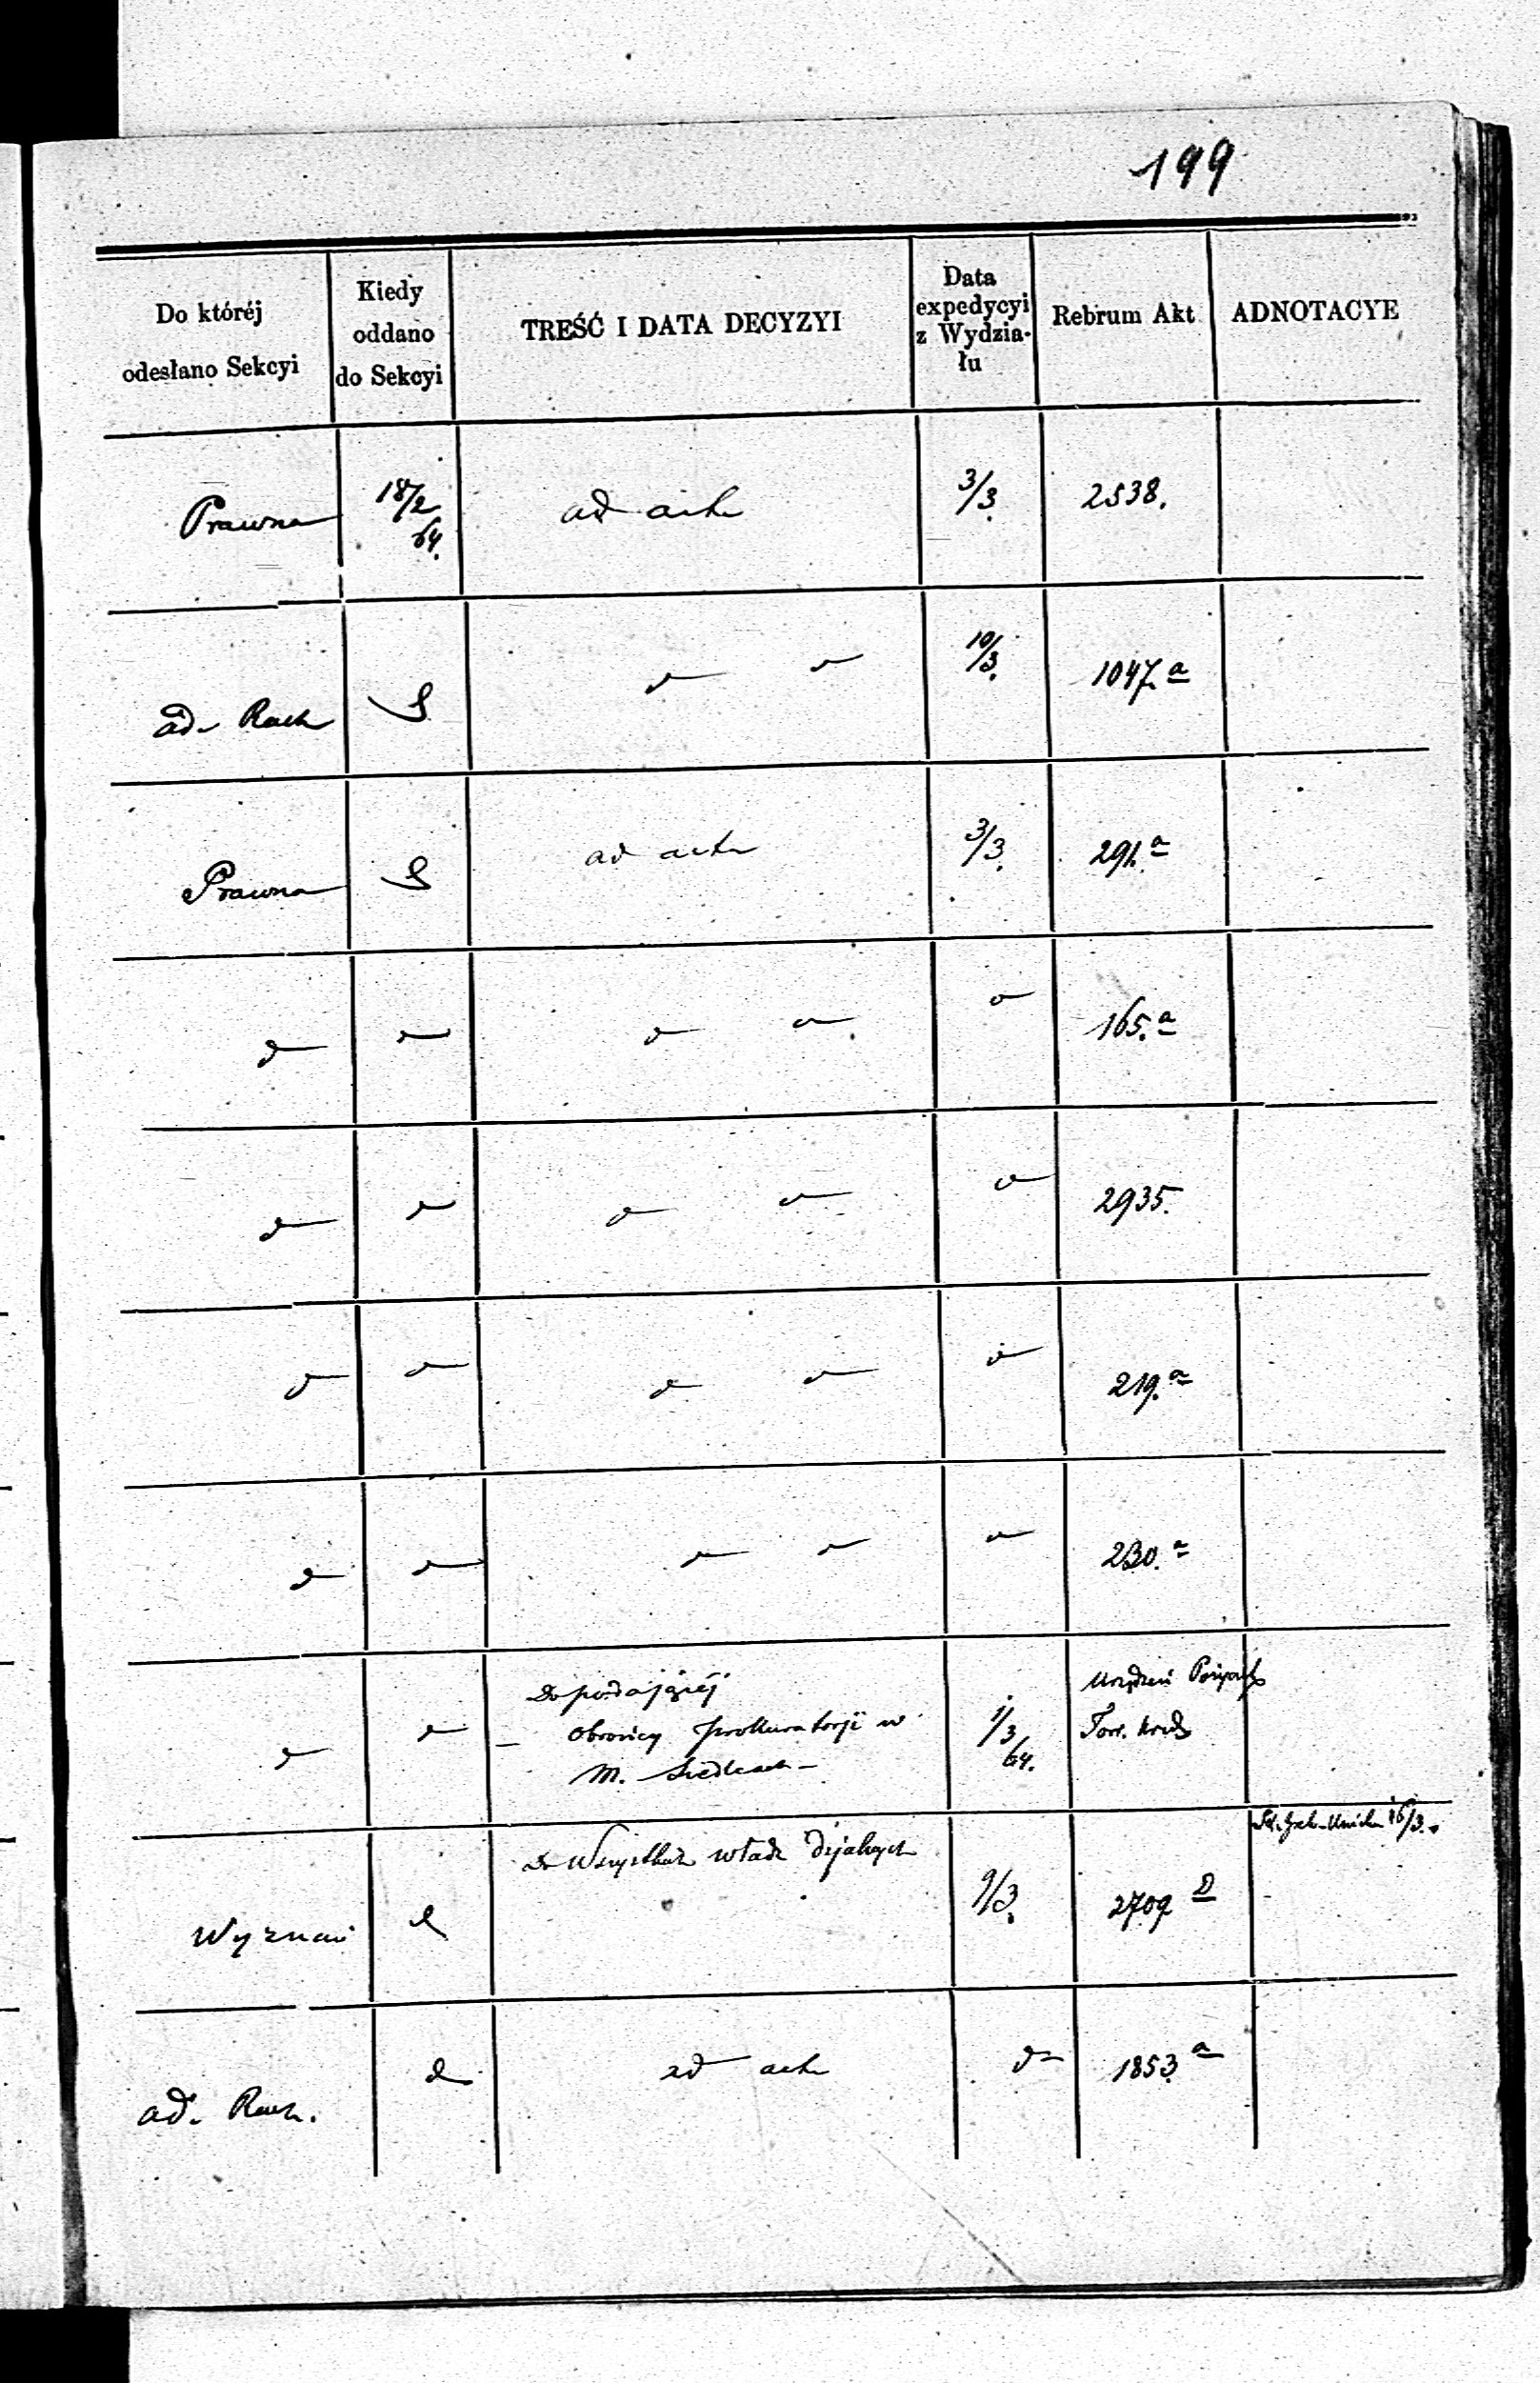 199
Do któréj
odesłano Sekcyi
Kiedy
oddano
do Sekcyi
TREŚĆ I DATA DECYZYI
Data
expedycyi
z Wydzia-
łu
Rebrum Akt
ADNOTACYE
Prawna 18/2 64. ad acta 3/3. 2538.
ad. Rach 10/3. 1047. a
Prawna ad acta 3/3. 291. a
165. a
2935.
219. a
230. a
Do podającéj
Obrońcy prokuratorji w
M. Siedlcach –
1/3 64.
16/3.
Wyznań Do Wszystkich władz 9/3. 2709
ad. Rach. ad acta 1853 a